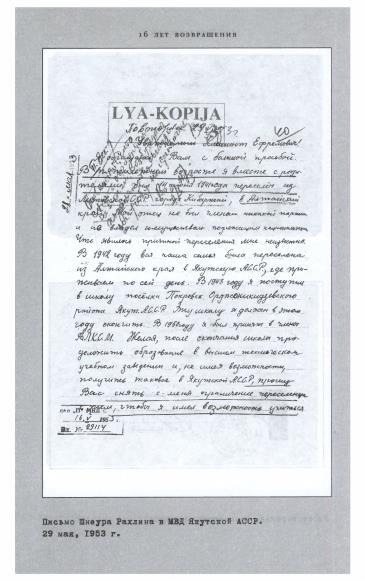 16 ЛЕТ ВОЗВРАЩЕНИЯ
LYA-KOPIJA
Климент Ефремович!
Вам с большой просьбой.
возрасте я вместе с роди-
телями 14 июня 1941 года переселён из
в Алтайский
край. отец не был членом
и не владел
Что явилось причиной переселения мне неизвестно.
В 1942 году вся наша семья была переселена
из Алтайского края в Якутскую АССР, где про-
живаем по сей день. В 1943 году я поступил
в школу посёлка Покровск Орджоникидзевского
района Якут. АССР. Эту школу я должен в этом
году окончить. В 1950 году я был принят в члены
ВЛКСМ. Желая, после окончания школы про-
должить образование в высшем техническом
учебном заведении и, не имея возможности
получить таковое в Якутской АССР, прошу
Вас снять с меня ограничение переселенца
с тем, чтобы я имел возможность учиться
Вх. № 29114
Письмо Шнеура Рахлина в МВД Якутской АССР.
29 мая, 1953 г.